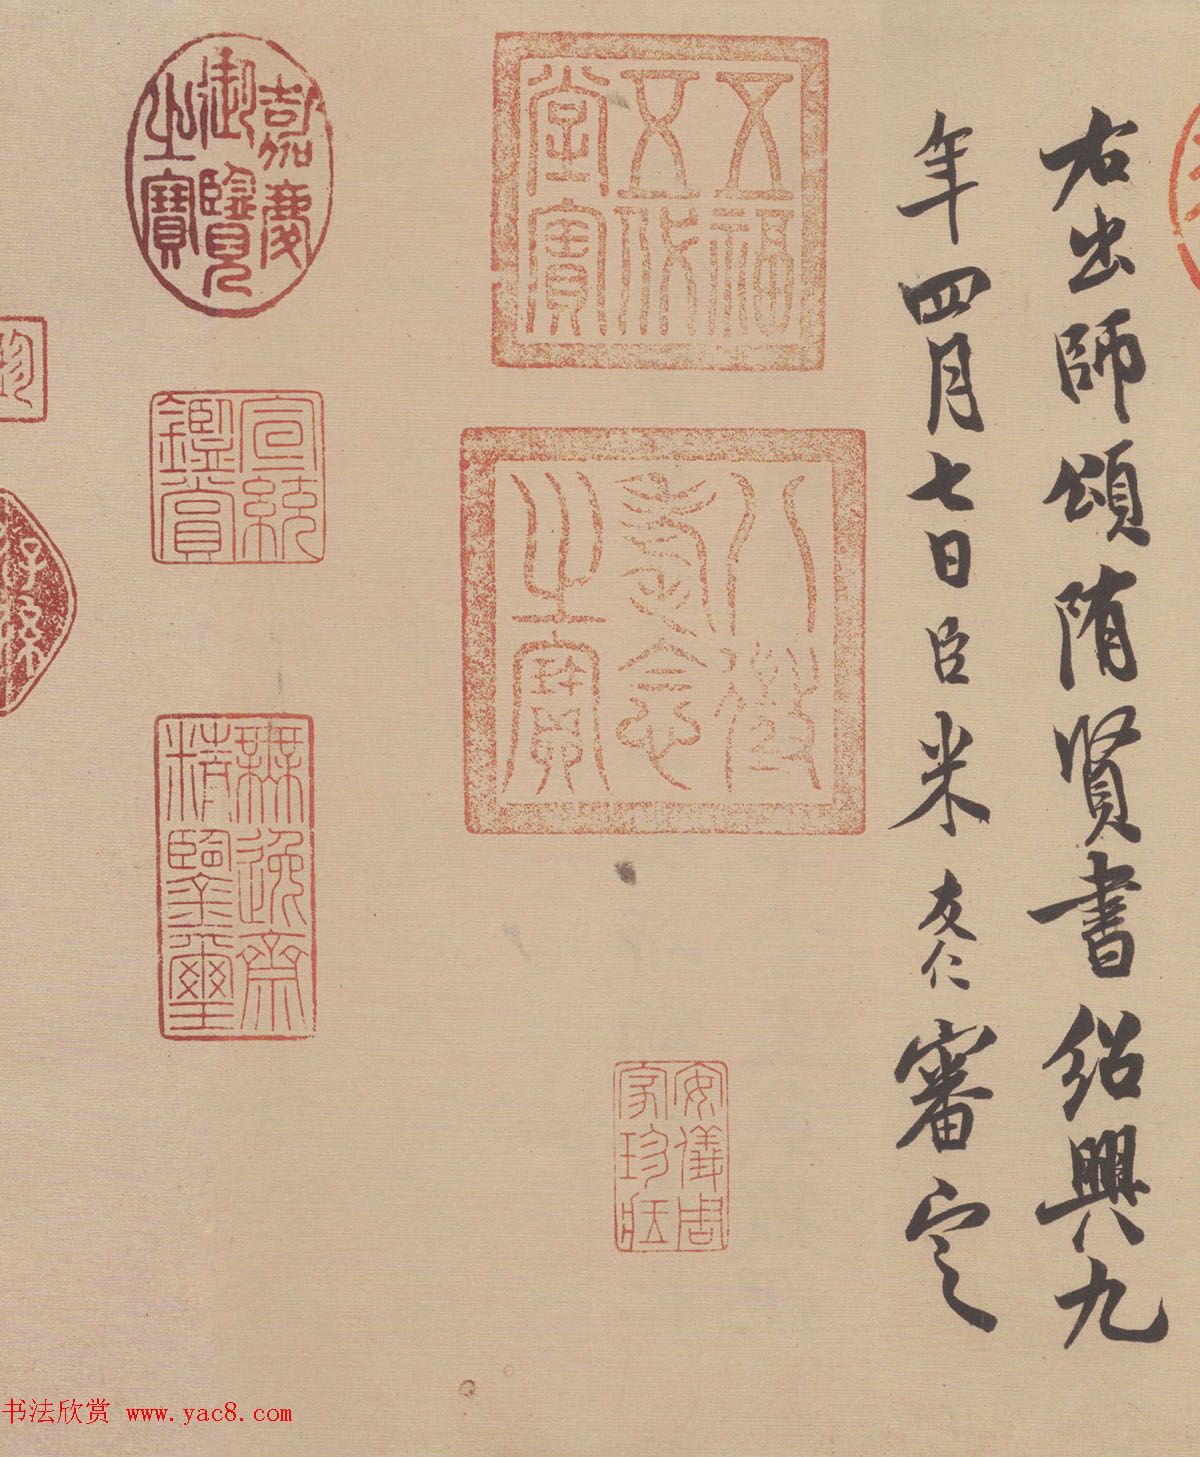 右出師頌隋賢書紹興九
年四月七日臣米友仁審定
五福
五代
堂寶
八徵
耄念
之寶
安儀周
家珍藏
嘉慶
御覽
之寶
宣統
鑑賞
無逸齋
精鑒璽
珍
书法欣赏 www.yac8.com